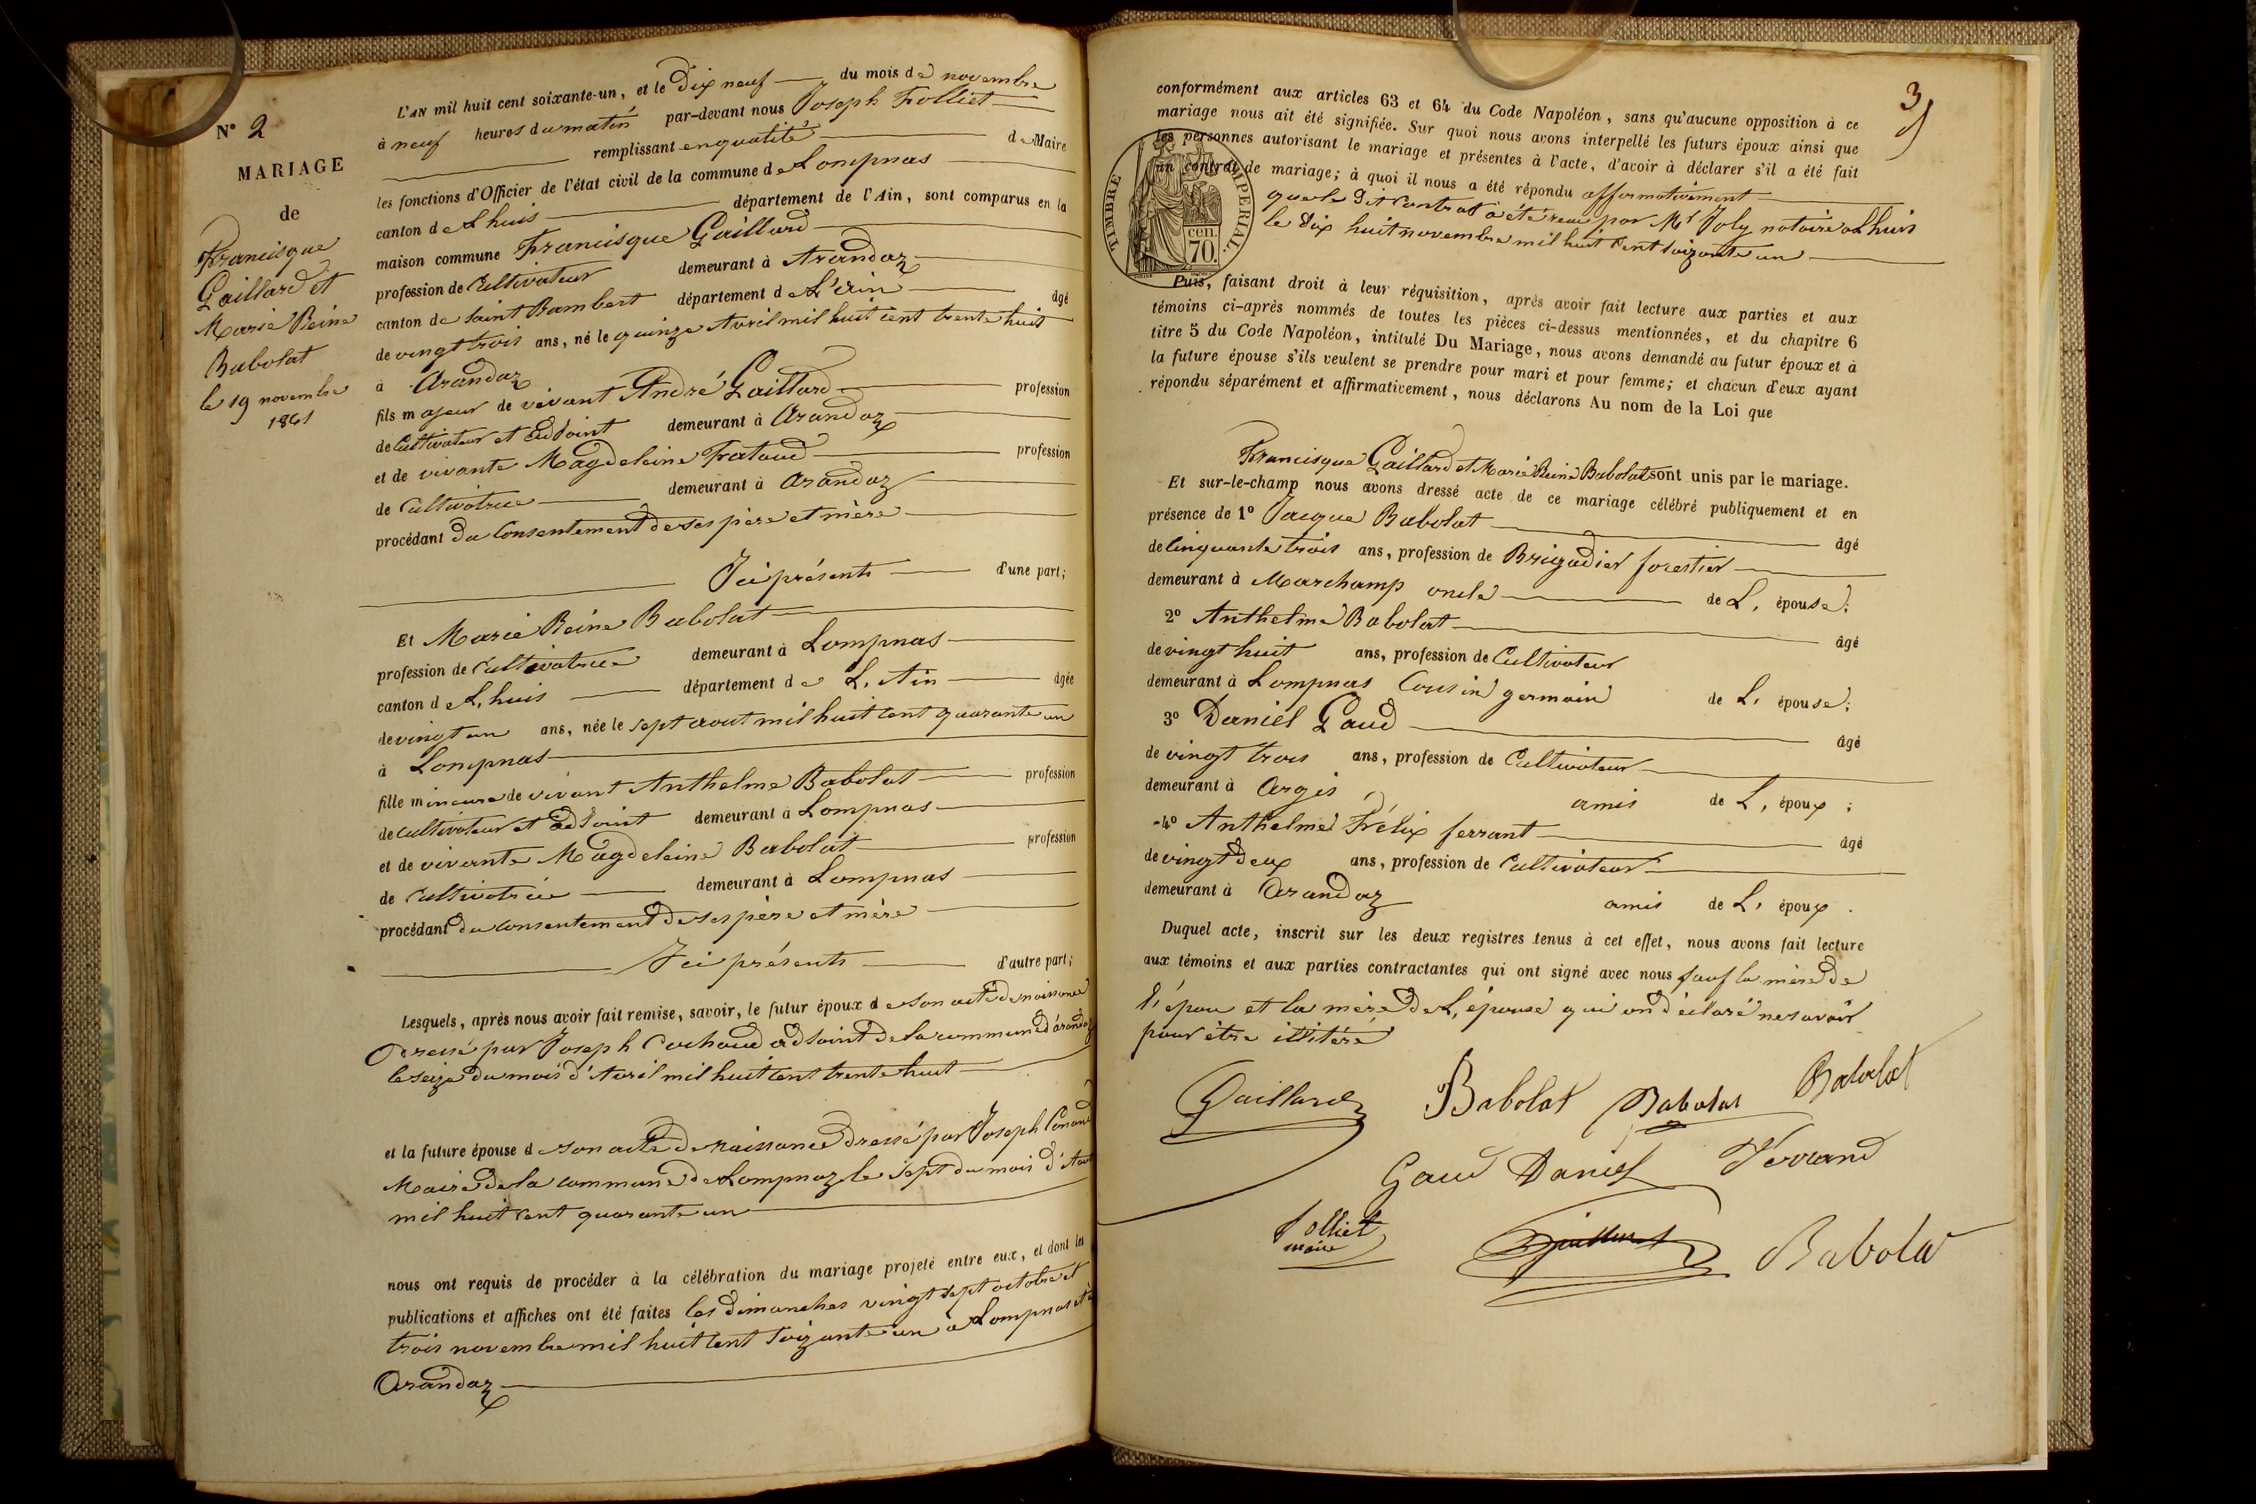 N° 2
MARIAGE
de
Francisque
Gaillard et
Marie Reine
Babolat
le 19 novembre
1861
L'AN mil huit cent soixante-un, et le Dix neuf du mois de novembre
à neuf heures du matin par-devant nous Joseph Folliet
remplissant en qualité de Maire
les fonctions d'Officier de l'état civil de la commune de Lompnas
canton de Lhuis département de l'Ain, sont comparus en la
maison commune Francisque Gaillard
profession de Cultivateur demeurant à Arandaz
canton de Saint Rambert département de L'ain âgé
de vingt trois ans, né le quinze Avril mil huit cent trente huit
à Arandaz
fils majeur de vivant André Gaillard profession
de Cultivateur et adsoint demeurant à Arandaz
et de vivante Magdeleine Frataud profession
de Cultivatrice demeurant à Arandaz
procédant du Consentement de ses père et mère
Ici présents d'une part;
Et Marie Reine Babolat
profession de Cultivatrice demeurant à Lompnas
canton de L,huis département de L, Ain âgée
de vingt un ans, née le sept aout mil huit cent quarante un
à Lompnas
fille mineure de vivant Anthelme Babolat profession
de cultivateur et adsoint demeurant à Lompnas
et de vivante Magdeleine Babolat profession
de Cultivatrice demeurant à Lompnas
procédant du consentement de ses père et mère
Ici présents d'autre part;
Lesquels, après nous avoir fait remise, savoir, le futur époux de son acte de naissance
Dressé par Joseph Cochaud adsoint de la commune d'arandaz
le seize du mois d'Avril mil huit cent trente huit
et la future épouse de son acte de naissance dressé par Joseph Conand
Maire de la commune de Lompnaz le sept du mois d'Aout
mil huit cent quarante un
nous ont requis de procéder à la célébration du mariage projeté entre eux, et dont les
publications et affiches ont été faites les dimanches vingt sept octobre et
trois novembre mil huit cent soixante un à Lompnas et à
Arandaz
3
conformément aux articles 63 et 64 du Code Napoléon, sans qu'aucune opposition à ce
mariage nous ait été signifiée. Sur quoi nous avons interpellé les futurs époux ainsi que
les personnes autorisant le mariage et présentes à l'acte, d'avoir à déclarer s'il a été fait
un contrat de mariage; à quoi il nous a été répondu affirmativement
que le dit Contrat a été recu par Mr Joly notaire a Lhuis
le Dix huit novembre mil huit cent soixante un
TIMBRE IMPERIAL.
cen.
70.
Puis, faisant droit à leur réquisition, après avoir fait lecture aux parties et aux
témoins ci-après nommés de toutes les pièces ci-dessus mentionnées, et du chapitre 6
titre 5 du Code Napoléon, intitulé Du Mariage, nous avons demandé au futur époux et à
la future épouse s'ils veulent se prendre pour mari et pour femme; et chacun d'eux ayant
répondu séparément et affirmativement, nous déclarons Au nom de la Loi que
Francisque Gaillard et Marie Reine Babolat sont unis par le mariage.
Et sur-le-champ nous avons dressé acte de ce mariage célébré publiquement et en
présence de 1° Jacque Babolat âgé
de Cinquante trois ans, profession de Brigadier forestier
demeurant à Marchamp oncle de L, épouse;
2° Anthelme Babolat âgé
de vingt huit ans, profession de Cultivateur
demeurant à Lompnas Cousin germain de L, épouse;
3° Daniel Gaud âgé
de vingt trois ans, profession de Cultivateur
demeurant à Argis amis de L, époux;
4° Anthelme Frélix ferrant âgé
de vingt deux ans, profession de Cultivateur
demeurant à Arandaz amis de L, époux.
Duquel acte, inscrit sur les deux registres tenus à cet effet, nous avons fait lecture
aux témoins et aux parties contractantes qui ont signé avec nous sauf la mère de
L'épou et la mère de L, épouse qui on déclaré ne savoir
pour être illitéré
Gaillard Babolat Babolat Babolat
Gaud Daniel Ferrand
folliet
maire
Gaillard Babolat